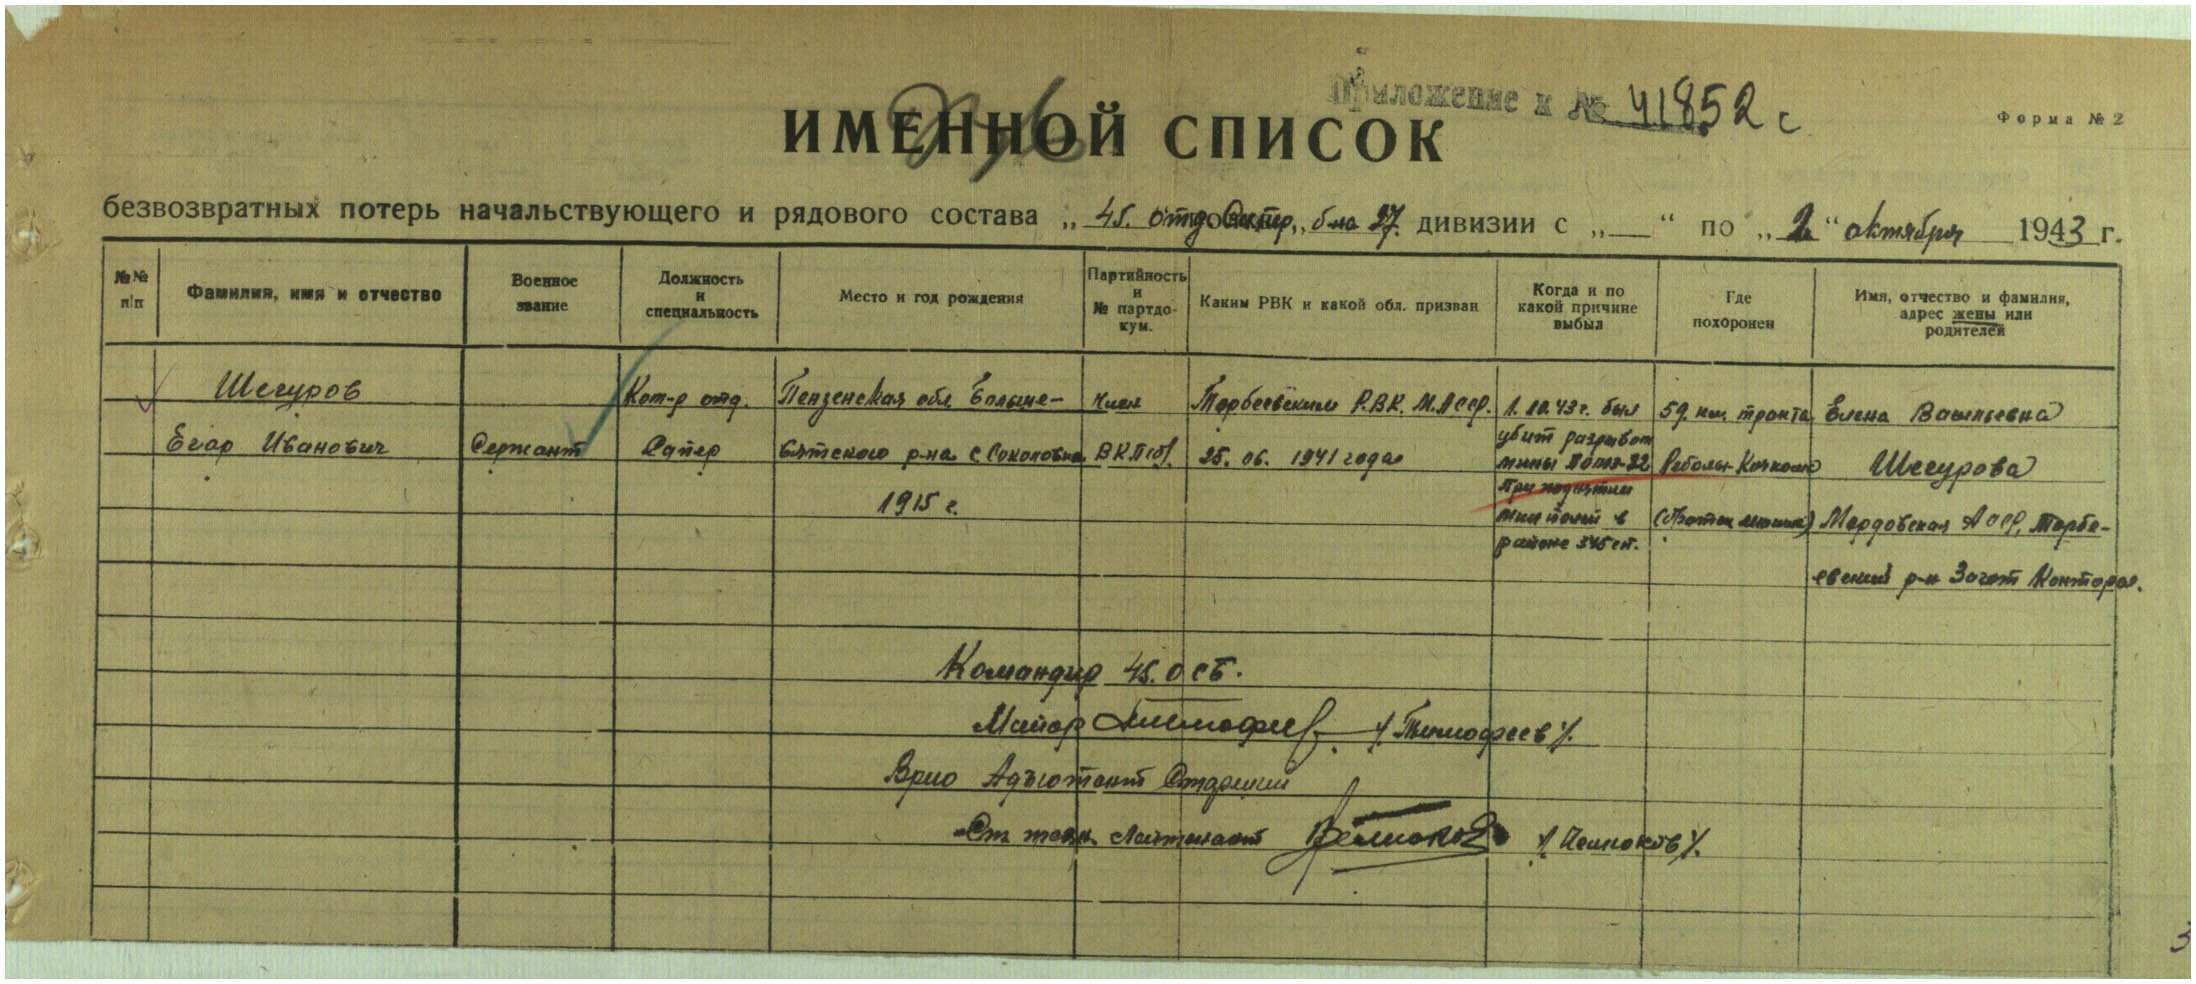 Приложение к № 41852 с
Форма № 2
ИМЕННОЙ СПИСОК
безвозвратных потерь начальствующего и рядового состава „ 45. отд. 27. дивизии с „ “ по „ 2 “ октября 1943 г.
№№ п/п
Фамилия, имя и отчество
Военное звание
Должность и специальность
Место и год рождения
Партийность и № партдокум.
Каким РВК и какой обл. призван
Когда и по какой причине выбыл
Где похоронен
Имя, отчество и фамилия, адрес жены или родителей
Шегуров
Егор Иванович
Сержант
Ком-р отд.
Сапер
Пензенская обл Больше-
вятского р-на с. Соколовка
1915 г.
Член
ВКП(б).
Торбеевским Р.В.К. М.АССР.
25. 06. 1941 года
1.10.43 г. был
убит разрывом
мины
При поднятии
мин полей в
районе
59 км. тракта
Реболы-
Елена Васильевна
Шегурова
Мордовская АССР, Торбе-
евский р-н Загот Контора.
Командир 45. ОСБ.
Майор Тимофеев /Тимофеев/.
Врио Адъютант Старший
Ст. техн. Лейтенант
3